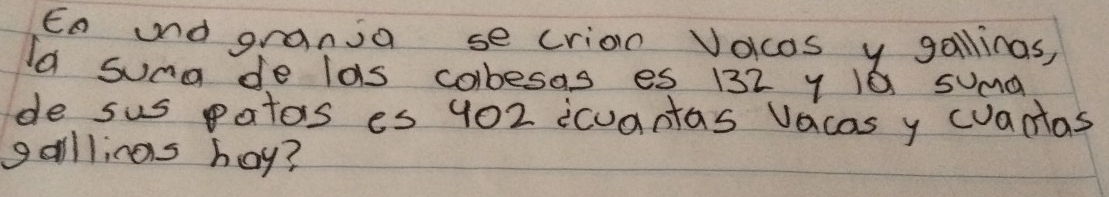 En una granja se crian Vacas y gallinas,
la suma de las cabesas es 132 y la suma
de sus patas es 402 ¿cuantas Vacas y cuantas
gallinas hay?